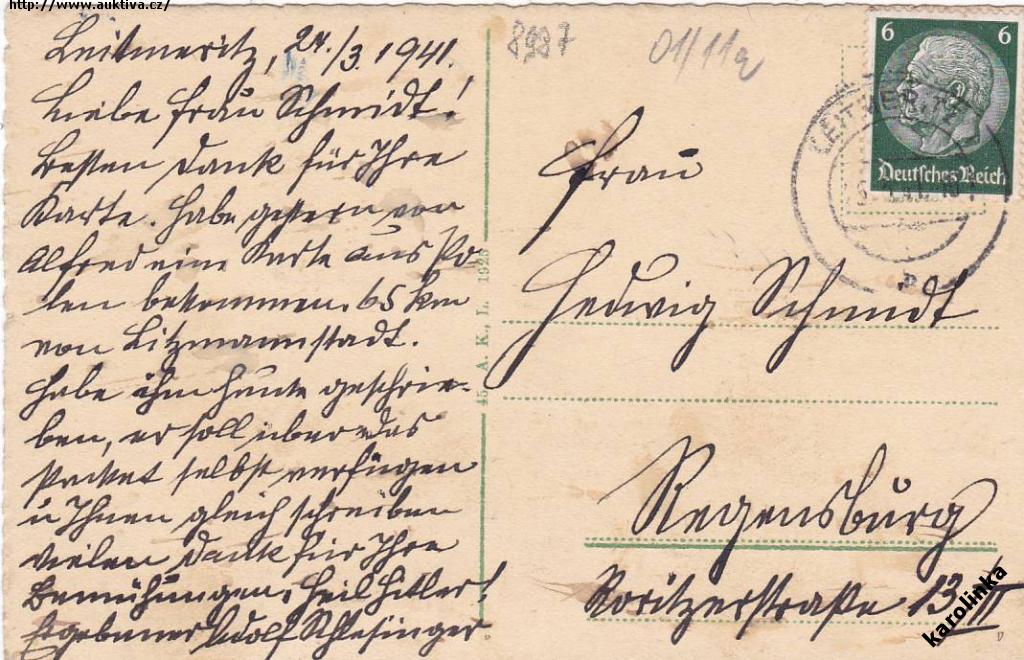 http://www.auktiva.cz/
Leitmeritz, 24./3. 1941.
Liebe Frau Schmidt!
Besten Dank für Ihre
Karte. Habe gestern von
Alfred eine Karte aus Po-
len bekommen. 65 km
von Litzmannstadt.
Habe ihm heute geschrie-
ben, er soll über das
Packet selbst verfügen
u Ihnen gleich schreiben
Vielen Dank für Ihre
Bemühungen. Heil Hitler!
Ergebener Adolf Schlesinger
45 A. K., L. 1928
8987
01/11a
6 6
Deutsches Reich
LEITMERITZ
Frau
Hedwig Schmidt
Regensburg
Roritzerstraße 13 III
karolinka